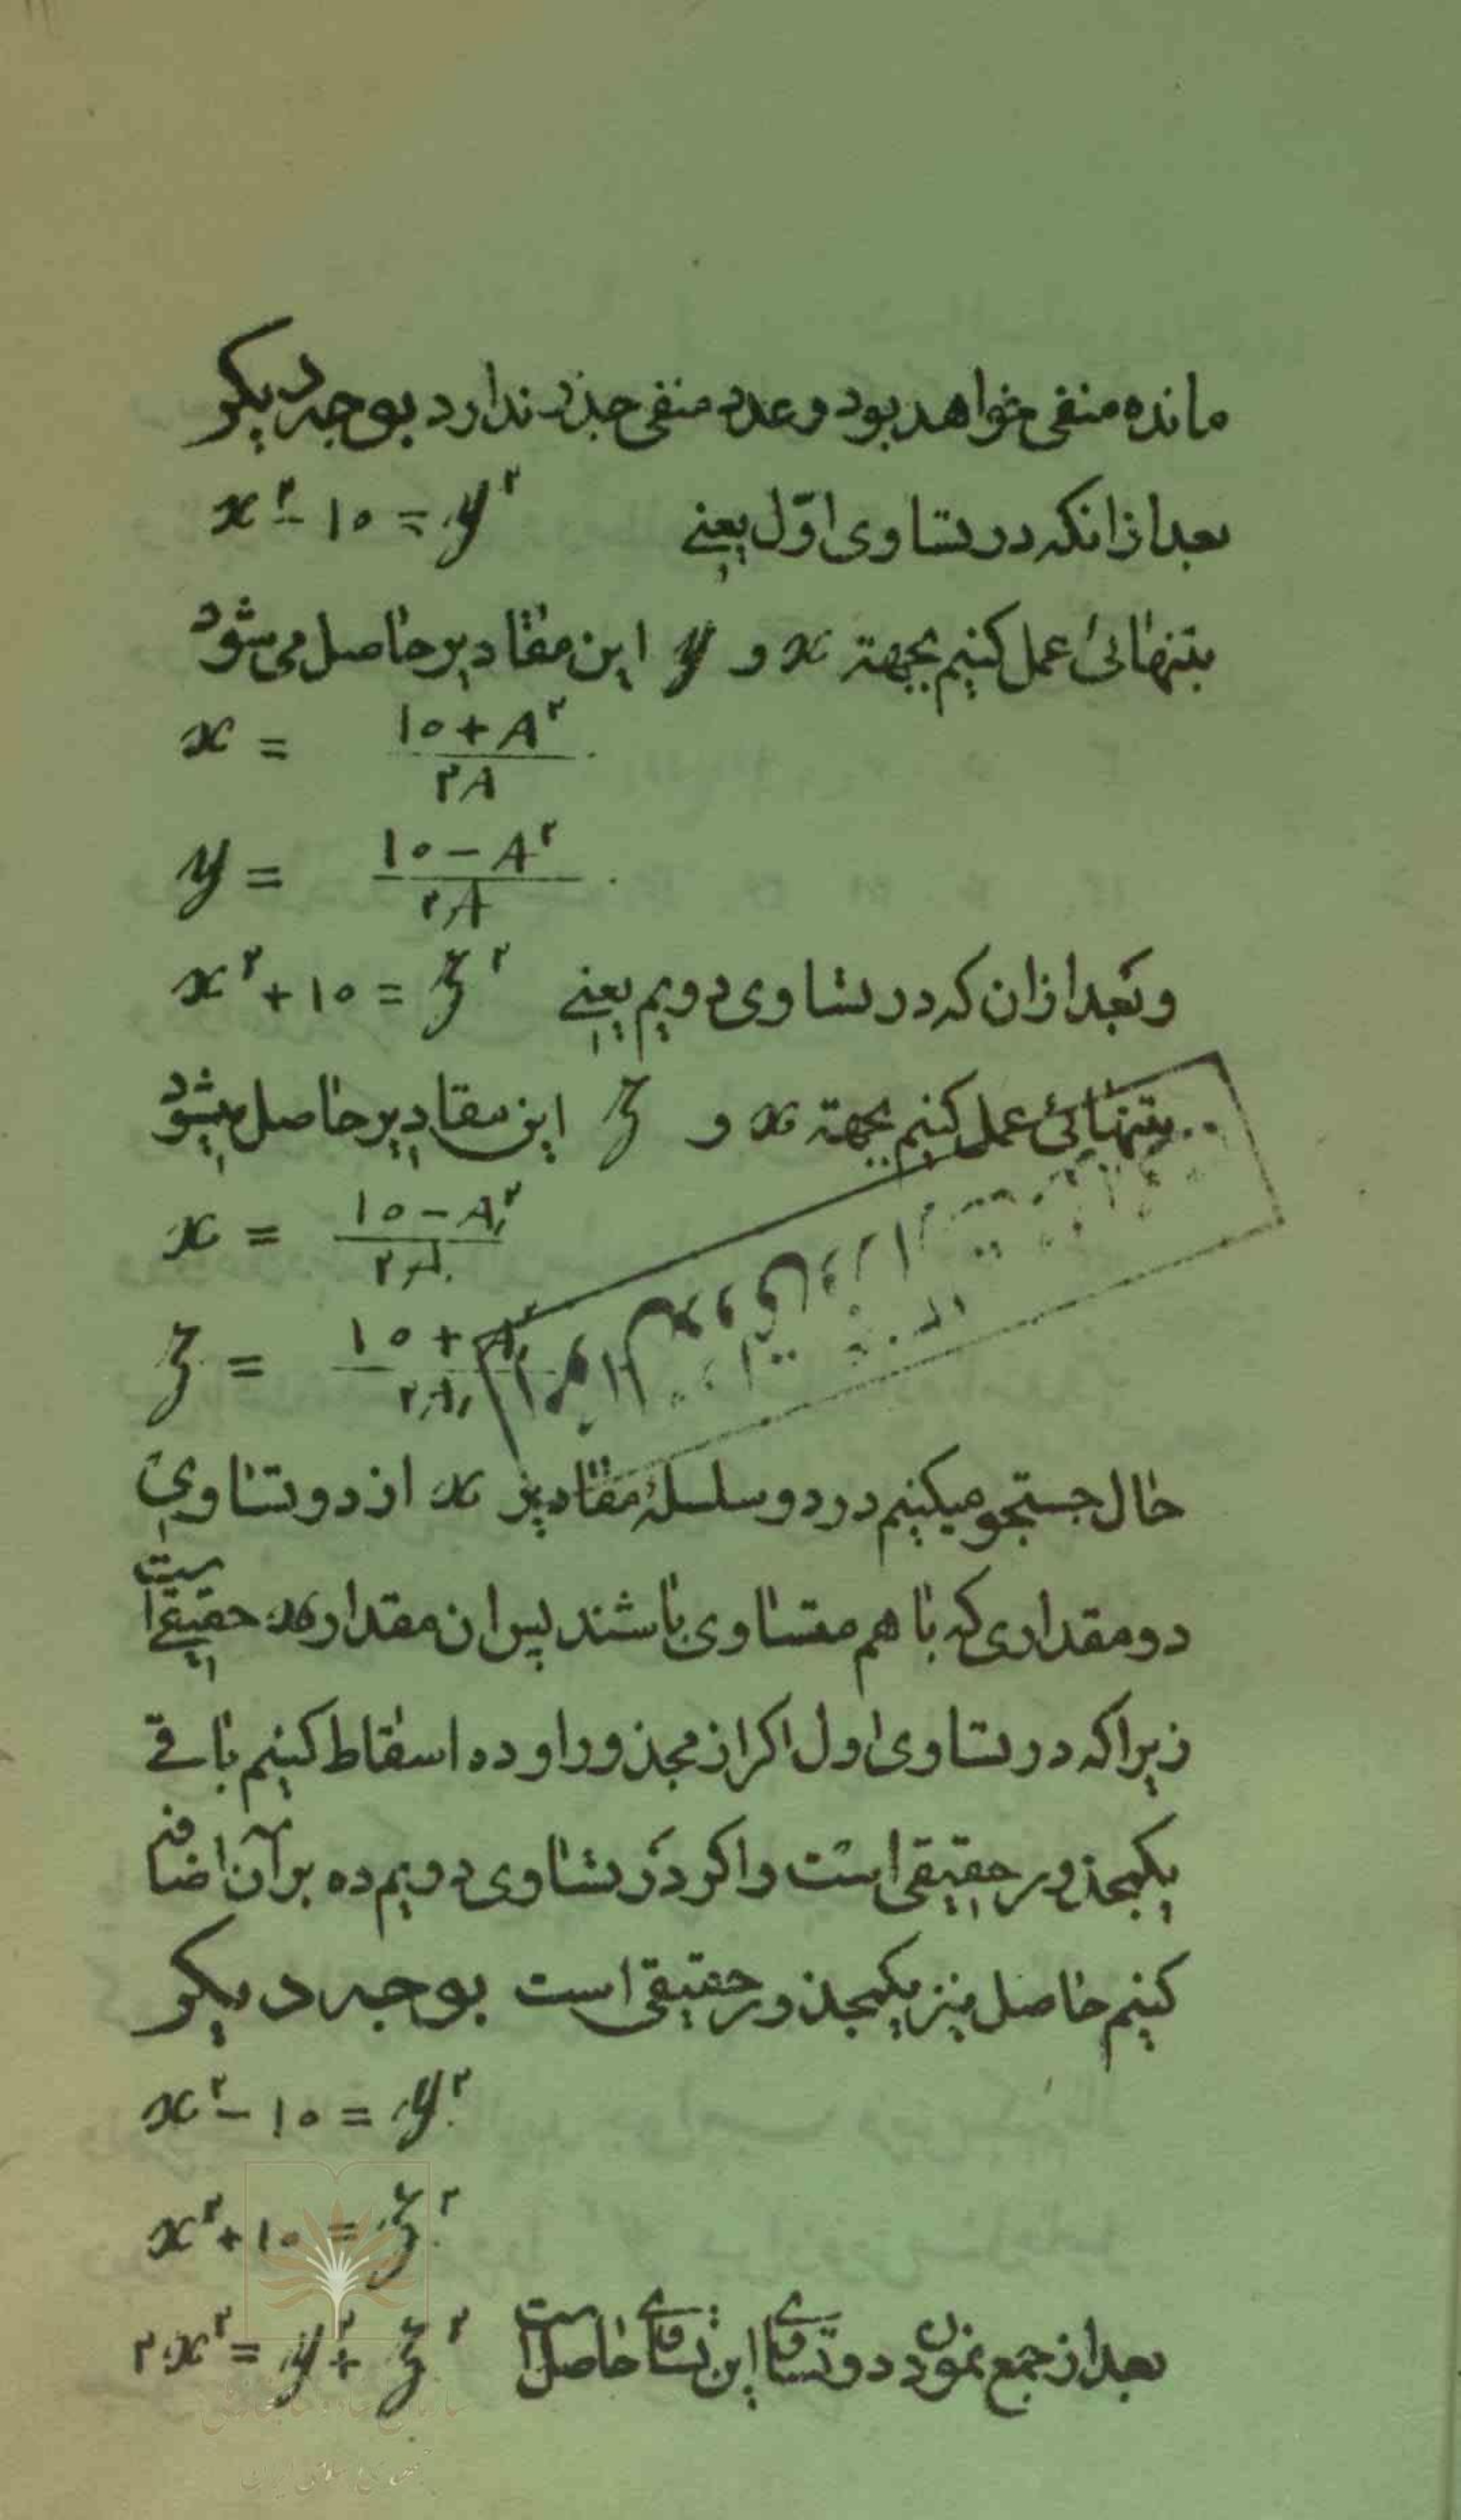 مانده منفی خواهد بود و عدد منفی جذر ندارد بوجه دیکر
بعد از انکه در تساوی اوّل یعنے x²-۱۰=y²
بتنهائی عمل کنیم بجهتة x و y این مقادیر حاصل می شود
x = (۱۰+A²)/(۲A)
y = (۱۰-A²)/(۲A)
و بعد از ان که در تساوی دویم یعنے x²+۱۰=z²
بتنهائی عمل کنیم بجهتة x و z این مقادیر حاصل میشود
x = (۱۰-A,²)/(۲A,)
z = (۱۰+A,²)/(۲A,)
حال جستجو میکنیم در دو سلسلهٔ مقادیر x از دو تساوی
دو مقداری که با هم متساوی باشند پس ان مقدار x حقیقے است
زیرا که در تساوی اول اکر از مجذور او ده اسقاط کنیم باقے
یکمجذور حقیقی است و اکر در تساوی دویم ده بر آن اضافه
کنیم حاصل نیز یکمجذور حقیقی است بوجه دیکر
x²-۱۰=y²
x²+۱۰=z²
بعد از جمع نمودن دو تساوے این تساوے حاصل است ۲x²=y²+z²